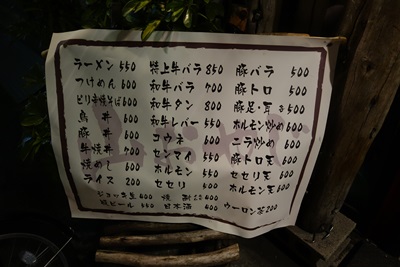 ラーメン 550
つけめん 600
ピリ辛焼そば 600
鳥丼 600
豚丼 600
牛焼丼 700
焼めし 600
ライス 200
特上牛バラ 850
和牛バラ 700
和牛タン 800
和牛レバー 550
コウネ 600
センマイ 550
ホルモン 550
セセリ 500
豚バラ 500
豚トロ 500
豚足・耳 各500
ホルモン炒め 600
ニラ炒め 600
豚トロ玉 600
セセリ玉 600
ホルモン玉 600
ジョッキ生 600
焼酎 400
ウーロン茶 200
瓶ビール 600
日本酒 400